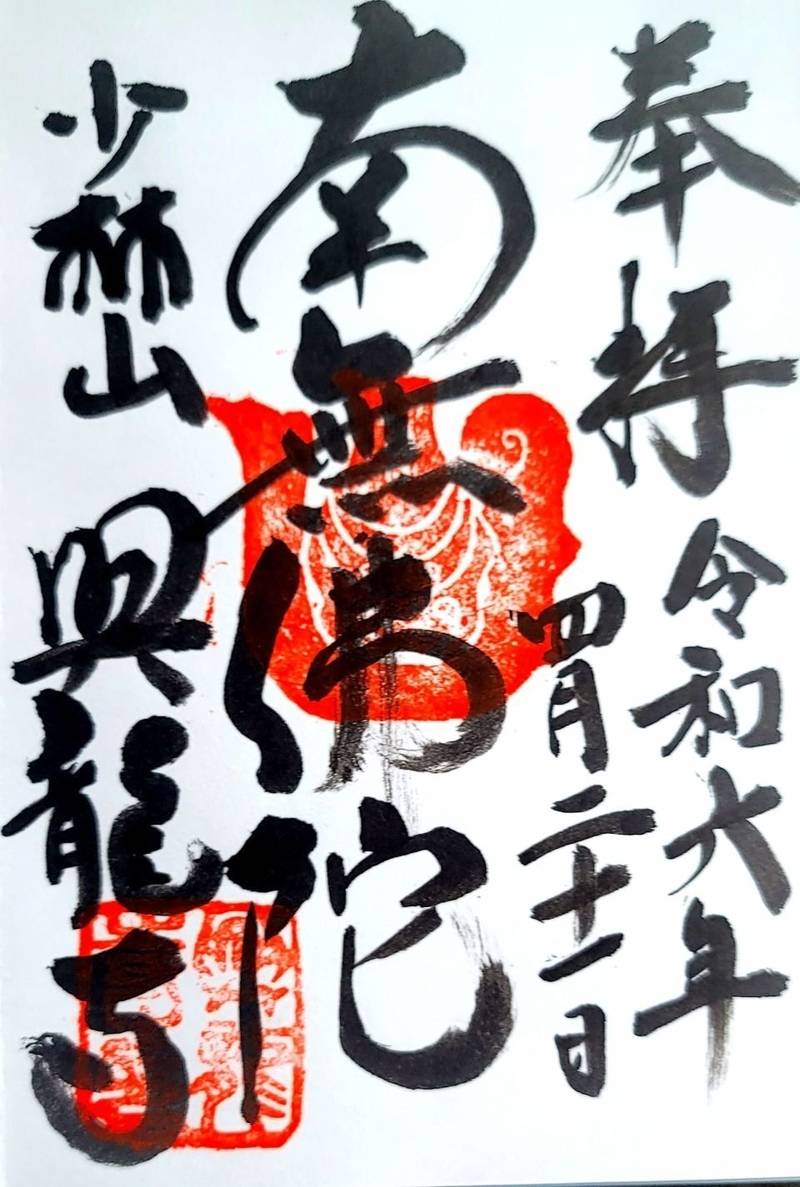 奉拝
令和六年
四月二十一日
南無佛陀
少林山
興龍寺